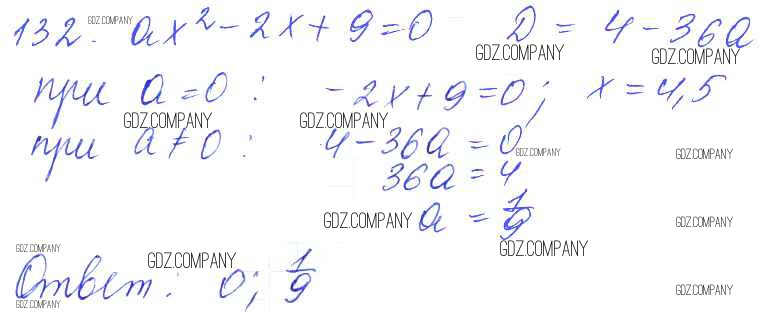 132. ax² - 2x + 9 = 0 D = 4 - 36a
при a = 0 : -2x + 9 = 0; x = 4,5
при a ≠ 0 : 4 - 36a = 0
36a = 4
a = 1/9
Ответ: 0; 1/9
GDZ.COMPANY
GDZ.COMPANY
GDZ.COMPANY
GDZ.COMPANY
GDZ.COMPANY
GDZ.COMPANY
GDZ.COMPANY
GDZ.COMPANY
GDZ.COMPANY
GDZ.COMPANY
GDZ.COMPANY
GDZ.COMPANY
GDZ.COMPANY
GDZ.COMPANY